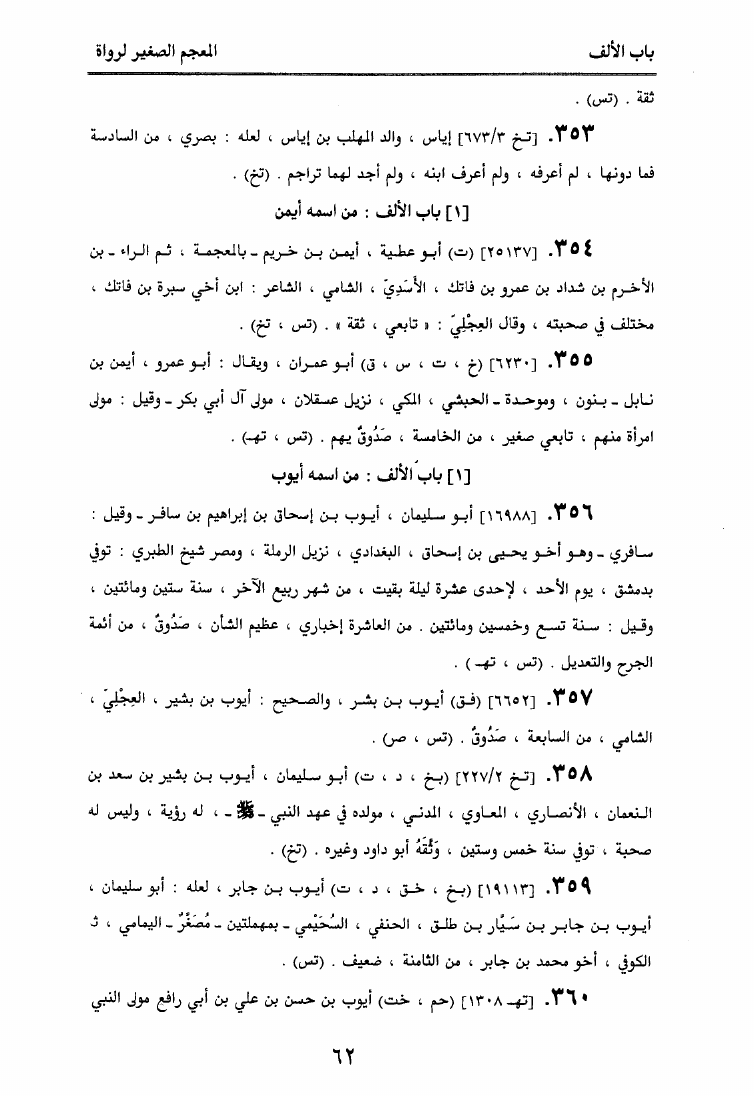 باب الألف المعجم الصغير لرواة
ثقة . (تس) .
٣٥٣. [تخ ٦٧٣/٣] إياس ، والد المهلب بن إياس ، لعله : بصري ، من السادسة
فما دونها ، لم أعرفه ، ولم أعرف ابنه ، ولم أجد لهما تراجم . (تخ) .
[١] باب الألف : من اسمه أيمن
٣٥٤. [٢٥١٣٧] (ت) أبو عطية ، أيمن بن خريم ـ بالمعجمة ، ثم الراء ـ بن
الأخرم بن شداد بن عمرو بن فاتك ، الأَسَدِيّ ، الشامي ، الشاعر : ابن أخي سبرة بن فاتك ،
مختلف في صحبته ، وقال العِجْلِيّ : « تابعي ، ثقة » . (تس ، تخ) .
٣٥٥. [٦٢٣٠] (خ ، ت ، س ، ق) أبو عمران ، ويقال : أبو عمرو ، أيمن بن
نابل ـ بنون ، وموحدة ـ الحبشي ، المكي ، نزيل عسقلان ، مولى آل أبي بكر ـ وقيل : مولى
امرأة منهم ، تابعي صغير ، من الخامسة ، صَدُوقٌ يهم . (تس ، تهـ) .
[١] باب الألف : من اسمه أيوب
٣٥٦. [١٦٩٨٨] أبو سليمان ، أيوب بن إسحاق بن إبراهيم بن سافر ـ وقيل :
سافري ـ وهو أخو يحيى بن إسحاق ، البغدادي ، نزيل الرملة ، ومصر شيخ الطبري : توفي
بدمشق ، يوم الأحد ، لإحدى عشرة ليلة بقيت ، من شهر ربيع الآخر ، سنة ستين ومائتين ،
وقيل : سنة تسع وخمسين ومائتين . من العاشرة إخباري ، عظيم الشأن ، صَدُوقٌ ، من أئمة
الجرح والتعديل . (تس ، تهـ) .
٣٥٧. [٦٦٥٢] (فق) أيوب بن بشر ، والصحيح : أيوب بن بشير ، العِجْلِيّ ،
الشامي ، من السابعة ، صَدُوقٌ . (تس ، صر) .
٣٥٨. [تخ ٢٢٧/٢] (بخ ، د ، ت) أبو سليمان ، أيوب بن بشير بن سعد بن
النعمان ، الأنصاري ، المعاوي ، المدني ، مولده في عهد النبي ـ ﷺ ـ ، له رؤية ، وليس له
صحبة ، توفي سنة خمس وستين ، وَثَّقَهُ أبو داود وغيره . (تخ) .
٣٥٩. [١٩١١٣] (بخ ، خق ، د ، ت) أيوب بن جابر ، لعله : أبو سليمان ،
أيوب بن جابر بن سَيَّار بن طلق ، الحنفي ، السُحَيْمي ـ بمهملتين ـ مُصَغَّرٌ ـ اليمامي ، ثـ
الكوفي ، أخو محمد بن جابر ، من الثامنة ، ضعيف . (تس) .
٣٦٠. [تهـ ١٣٠٨] (حم ، خت) أيوب بن حسن بن علي بن أبي رافع مولى النبي
٦٢